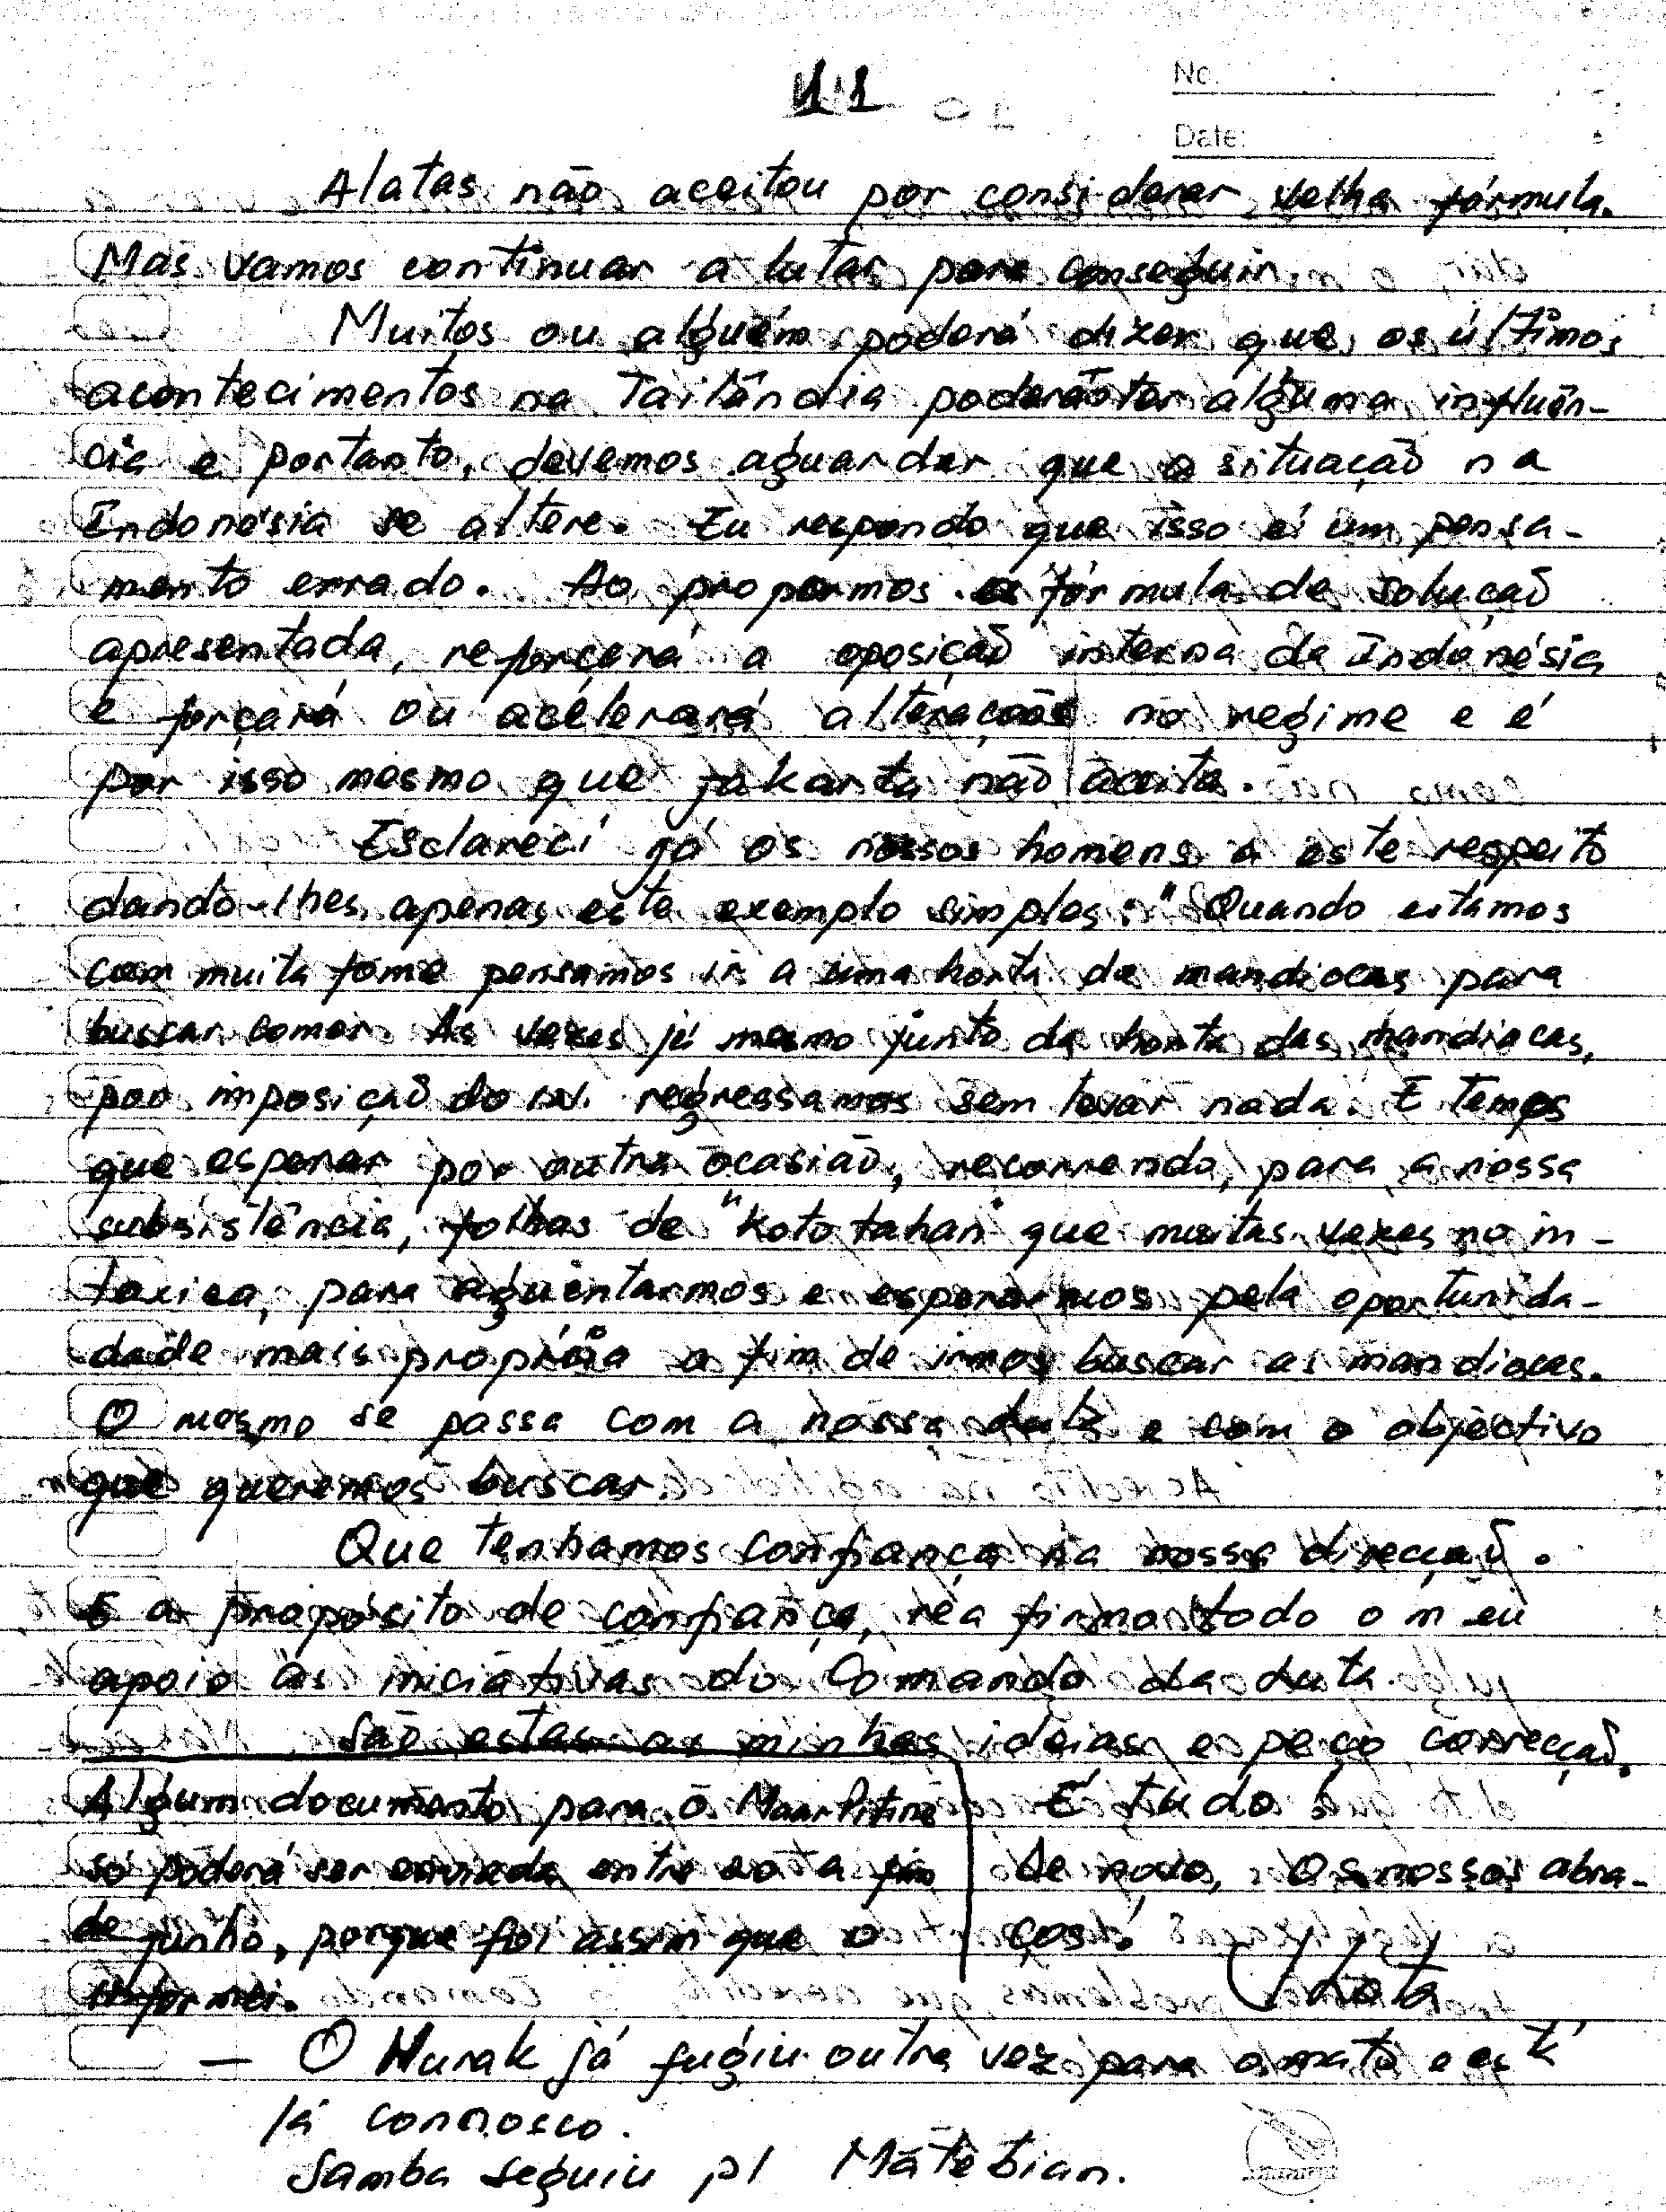 11
No.
Date:
Alatas não aceitou por considerar velha fórmula.
Mas vamos continuar a lutar para conseguir.
Muitos ou alguém poderá dizer que os últimos
acontecimentos na Tailândia poderão ter alguma influên-
cia e portanto, devemos aguardar que a situação na
Indonésia se altere. Eu respondo que isso é um pensa-
mento errado. Ao propormos a fórmula de solução
apresentada, reforçará a oposição interna da Indonésia
e forçará ou acelerará alterações no regime e é
por isso mesmo que Jakarta não aceita.
Esclareci já os nossos homens a este respeito
dando-lhes apenas este exemplo simples: "Quando estamos
com muita fome pensamos ir a uma horta de mandiocas para
buscar comer. Às vezes já mesmo junto da horta das mandiocas,
por imposição do in. regressamos sem levar nada. E temos
que esperar por outra ocasião, recorrendo, para a nossa
subsistência, folhas de "koto tahan" que muitas vezes no in-
toxica, para aguentarmos e esperarmos pela oportunida-
dade mais própria a fim de irmos buscar as mandiocas.
O mesmo se passa com a nossa luta e com o objectivo
que queremos buscar.
Que tenhamos confiança na nossa direcção.
E a propósito de confiança, reafirmo todo o meu
apoio às iniciativas do Comando da Luta.
São estas as minhas ideias e peço correcção.
Algum documento para o Maar Pitine
só poderá ser enviado entre 20 a fim
de junho, porque foi assim que o
informei.
É tudo!
De novo, os nossos abra-
ços!
Lotą
— O Hurak já fugiu outra vez para o mato e está
lá connosco.
Samba seguiu p/ Matebian.